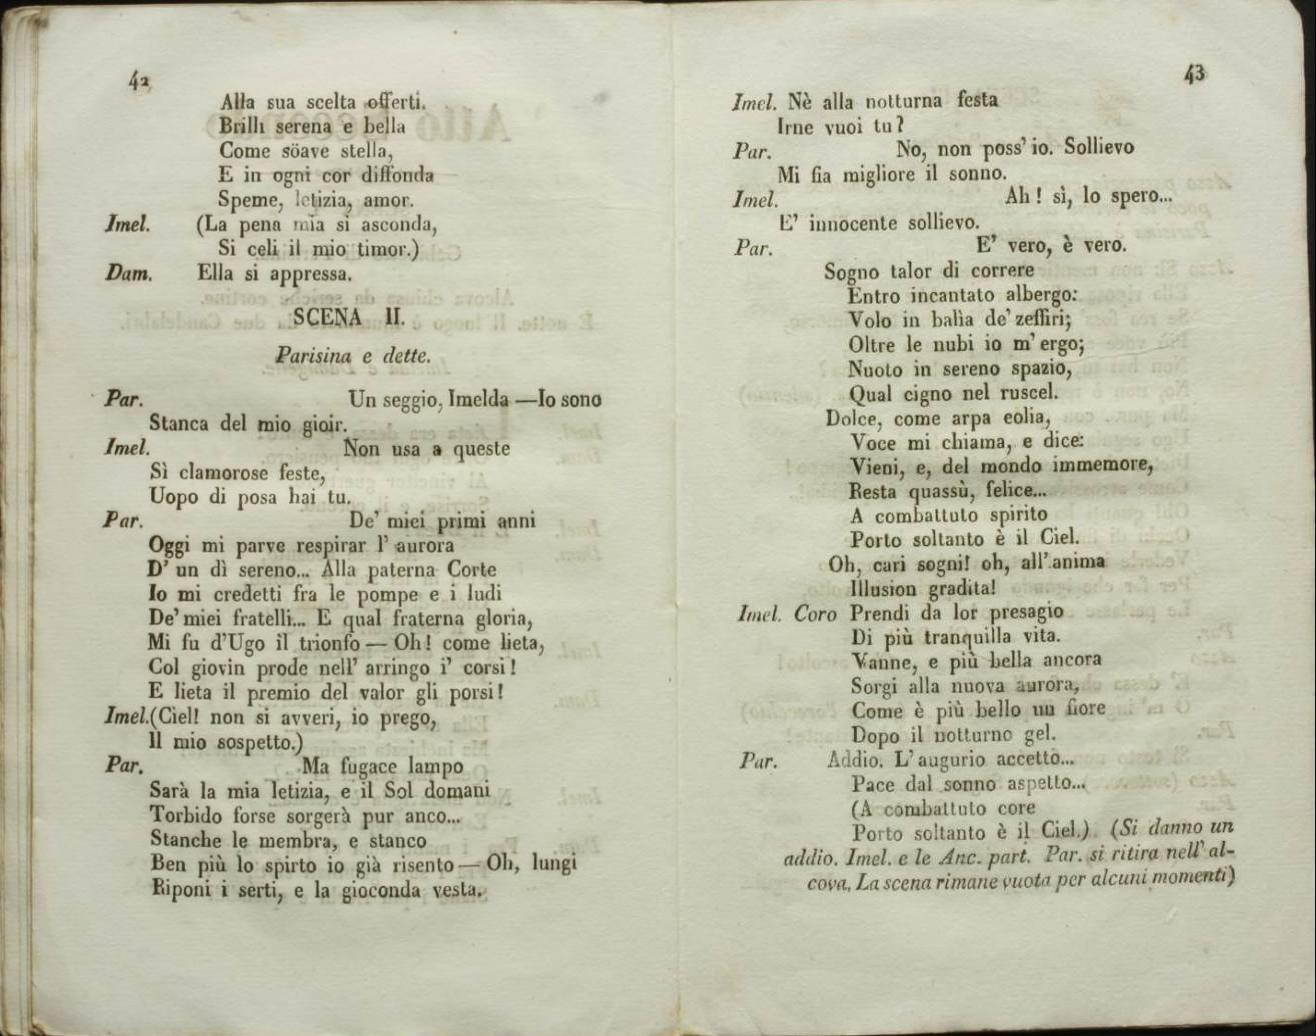 42
Alla sua scelta offerti.
Brilli serena e bella
Come söave stella,
E in ogni cor diffonda
Speme, letizia, amor.
Imel. (La pena mia si asconda,
Si celi il mio timor.)
Dam. Ella si appressa.
SCENA II.
Parisina e dette.
Par. Un seggio, Imelda —Io sono
Stanca del mio gioir.
Imel. Non usa a queste
Sì clamorose feste,
Uopo di posa hai tu.
Par. De' miei primi anni
Oggi mi parve respirar l' aurora
D' un dì sereno... Alla paterna Corte
Io mi credetti fra le pompe e i ludi
De' miei fratelli... E qual fraterna gloria,
Mi fu d'Ugo il trionfo — Oh! come lieta,
Col giovin prode nell' arringo i' corsi!
E lieta il premio del valor gli porsi!
Imel. (Ciel! non si avveri, io prego,
Il mio sospetto.)
Par. Ma fugace lampo
Sarà la mia letizia, e il Sol domani
Torbido forse sorgerà pur anco...
Stanche le membra, e stanco
Ben più lo spirto io già risento — Oh, lungi
Riponi i serti, e la gioconda vesta.
43
Imel. Nè alla notturna festa
Irne vuoi tu?
Par. No, non poss' io. Sollievo
Mi fia migliore il sonno.
Imel. Ah! sì, lo spero...
E' innocente sollievo.
Par. E' vero, è vero.
Sogno talor di correre
Entro incantato albergo:
Volo in balìa de' zeffiri;
Oltre le nubi io m' ergo;
Nuoto in sereno spazio,
Qual cigno nel ruscel.
Dolce, come arpa eolia,
Voce mi chiama, e dice:
Vieni, e, del mondo immemore,
Resta quassù, felice...
A combattuto spirito
Porto soltanto è il Ciel.
Oh, cari sogni! oh, all' anima
Illusion gradita!
Imel. Coro Prendi da lor presagio
Di più tranquilla vita.
Vanne, e più bella ancora
Sorgi alla nuova aurora,
Come è più bello un fiore
Dopo il notturno gel.
Par. Addio. L' augurio accetto...
Pace dal sonno aspetto...
(A combattuto core
Porto soltanto è il Ciel.) (Si danno un
addio. Imel. e le Anc. part. Par. si ritira nell' al-
cova, La scena rimane vuota per alcuni momenti)